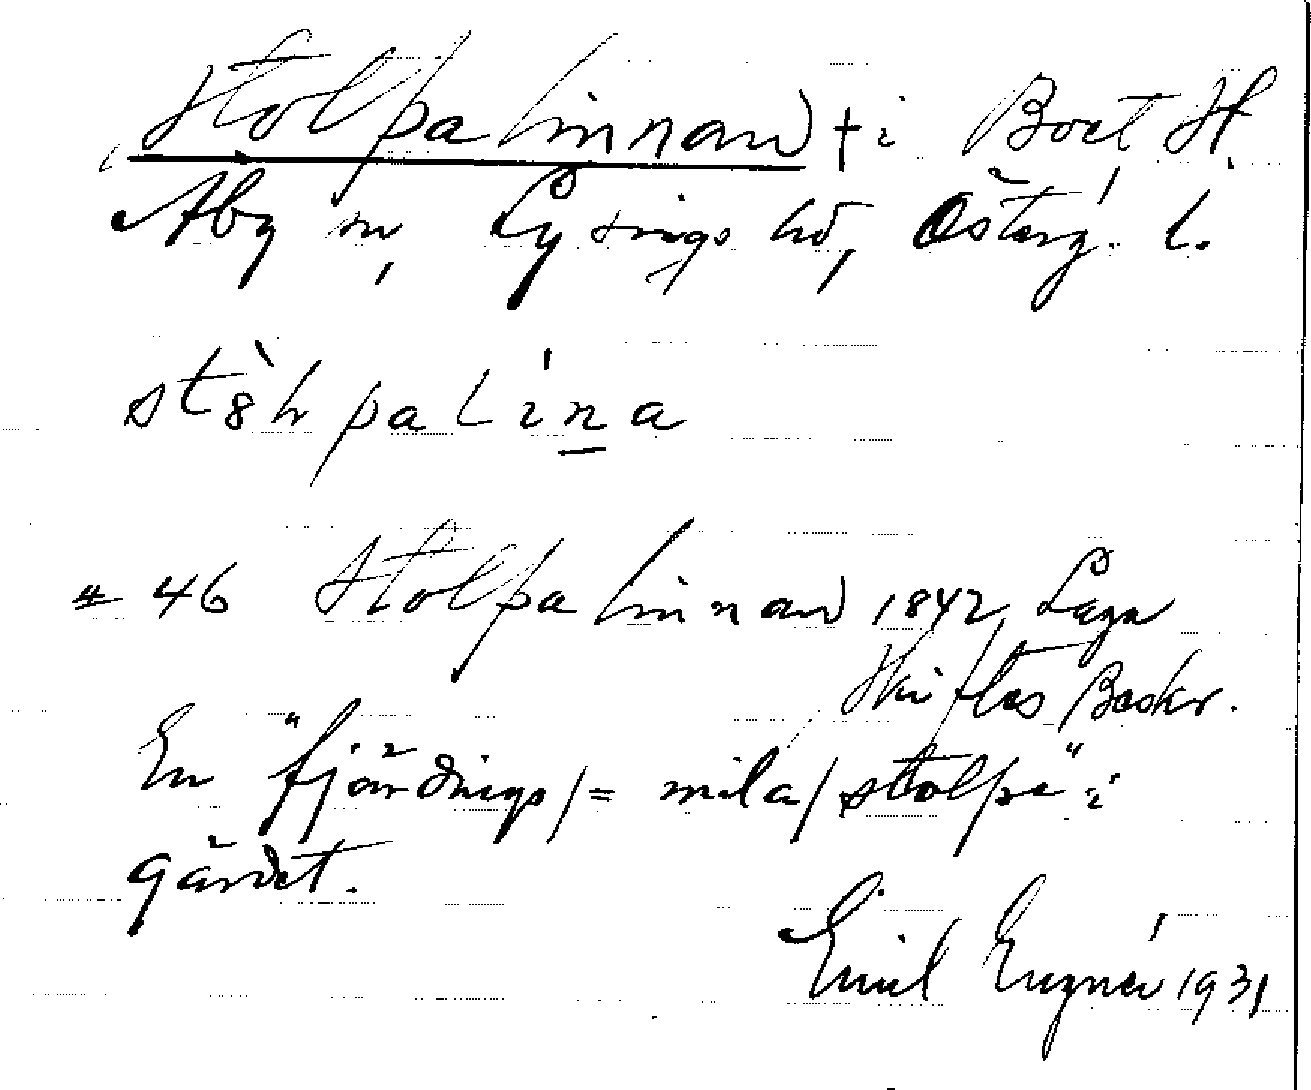 Stolpalinnan † i Boet H.
Aby sn, Lysings hd, Österg. l.
stȯ̀lpalína
# 46 Stolpalinnan 1842, Laga
Skiftes Beskr.
En "fjärdings/= mila/stolpe" i
gärdet.
Emil 1931